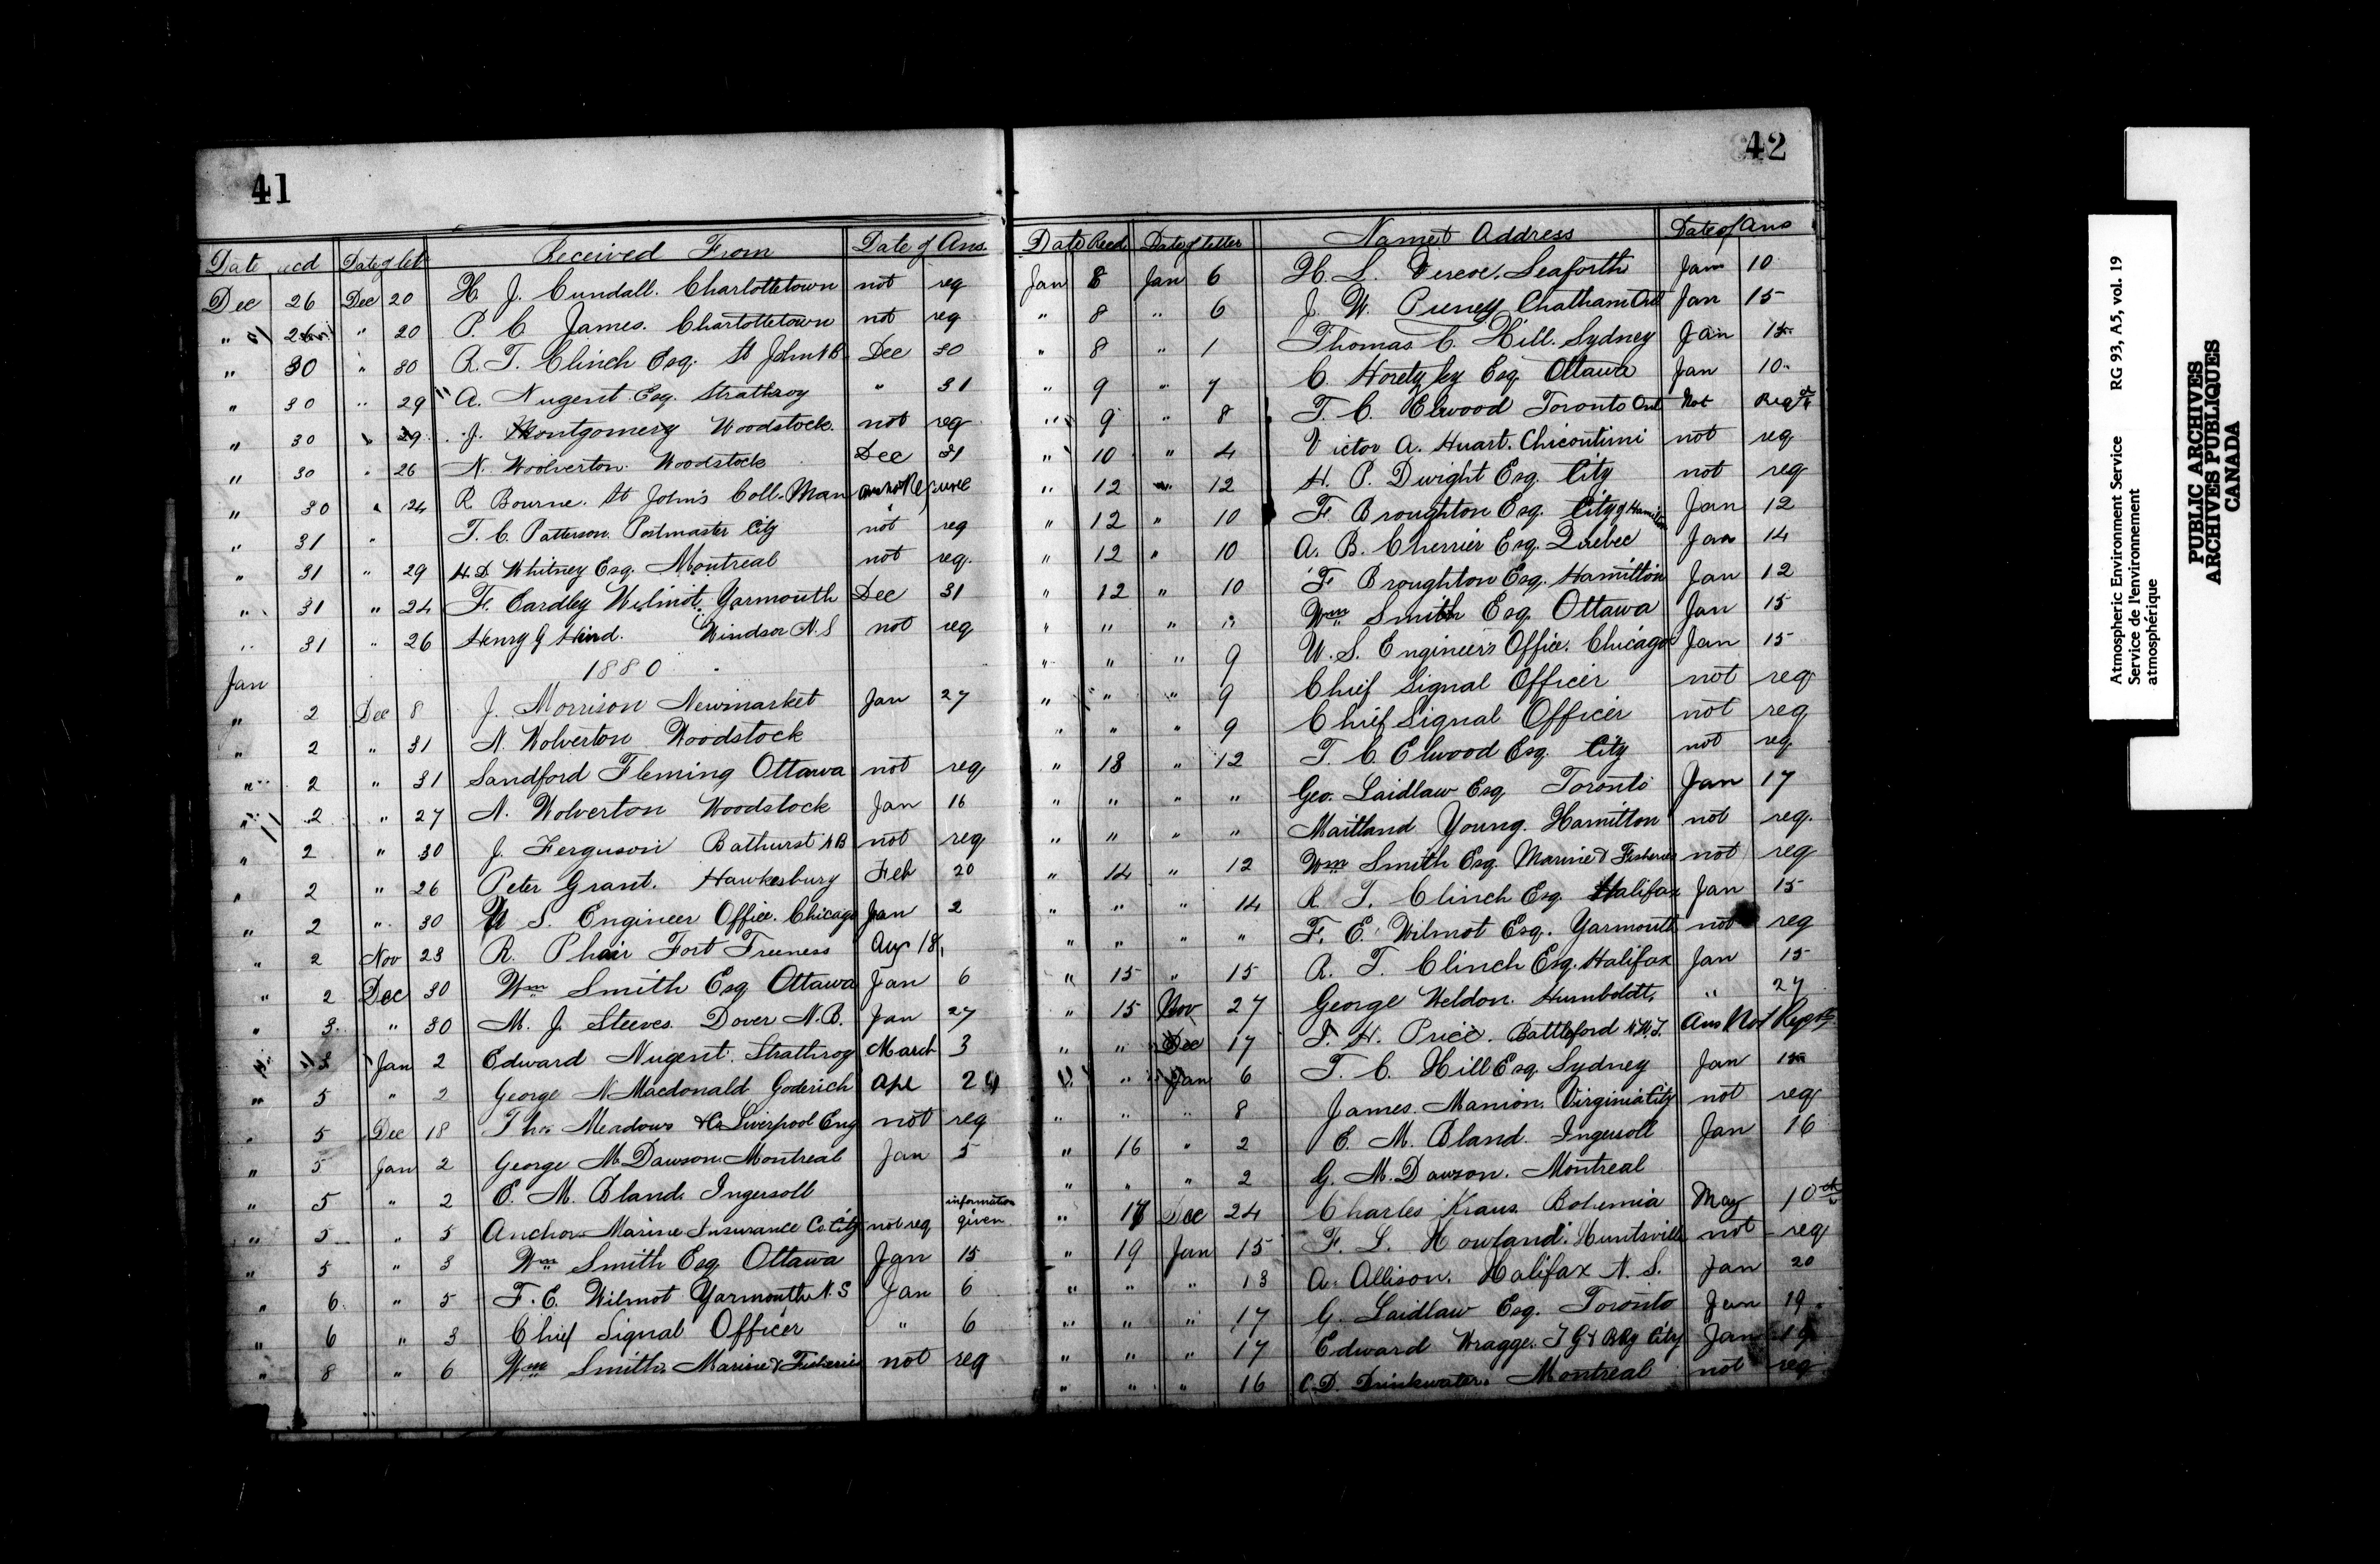 41
Date ecd Date of let Received From Date of Ans.
Dec 26 Dec 20 H. J. Cundall. Charlottetown not req
" 26 " 20 P. C James. Charlottetown not req
" 30 " 30 R. T. Clinch Esq. St John N B Dec 30
" 30 " 29 A. Nugent Esq. Strathroy " 31
" 30 " 29 J. Montgomery Woodstock. not req
" 30 " 26 N. Woolverton. Woodstock Dec 31
" 30 " 24 R Bourne. St John's Coll. Man
" 31 " T. C. Patterson. Postmaster City not req
" 31 " 29 H. D. Whitney Esq. Montreal not req.
" 31 " 24 F. Eardley Wilmot. Yarmouth Dec 31
" 31 " 26 Henry G Hind. Windsor N. S not req
Jan 1880
" 2 Dec 8 J. Morrison Newmarket Jan 27
" 2 " 31 N. Wolverton Woodstock
" 2 " 31 Sandford Fleming Ottawa not req
" 2 " 27 N. Wolverton Woodstock Jan 16
" 2 " 30 J. Ferguson Bathurst N B not req
" 2 " 26 Peter Grant. Hawkesbury Feb 20
" 2 " 30 U S. Engineer Office. Chicago Jan 2
" 2 Nov 23 R. Phair Fort Aug 18
" 2 Dec 30 Wm Smith Esq Ottawa Jan 6
" 3 " 30 M. J. Steeves. Dover N. B. Jan 27
" 3 Jan 2 Edward Nugent. Strathroy March 3
" 5 " 2 George N Macdonald Goderich Apl
" 5 Dec 18 Thos Meadows & Co Liverpool Eng not req
" 5 Jan 2 George M. Dawson. Montreal Jan 5
" 5 " 2 E. M. Bland. Ingersoll
" 5 " 5 Anchor Marine Insurance Co. City not req information given
" 5 " 3 Wm Smith Esq Ottawa Jan 15
" 6 " 5 F. E. Wilmot Yarmouth N. S Jan 6
" 6 " 3 Chief Signal Officer " 6
" 8 " 6 Wm Smith. Marine & Fisheries not req
42
Date Recd Date of letter Name & Address Date of Ans
Jan 8 Jan 6 H. L. Seaforth Jan 10
" 8 " 6 J. W. Chatham Ont Jan 15
" 8 " 1 Thomas C. Hill. Sydney Jan 15
" 9 " 7 C. Horetzky Esq Ottawa Jan 10
" 9 " 8 T. C. Elwood Toronto Ont Not Reqd
" 10 " 4 Victor A. Huart. Chicoutimi not req
" 12 " 12 H. P. Dwight Esq City not req
" 12 " 10 F Broughton Esq. City of Hamilton Jan 12
" 12 " 10 A. B. Cherrier Esq. Quebec Jan 14
" 12 " 10 F Broughton Esq. Hamilton Jan 12
" " " " Wm Smith Esq Ottawa Jan 15
" " " 9 U. S. Engineers Office. Chicago Jan 15
" " " 9 Chief Signal Officer not req
" " " 9 Chief Signal Officer not req
" 13 " 12 T. C Elwood Esq City not req
" " " " Geo. Laidlaw Esq Toronto Jan 17
" " " " Maitland Young. Hamilton not req.
" 14 " 12 Wm Smith Esq. Marine & Fisheries not req
" " " 14 R T. Clinch Esq Halifax Jan 15
" " " " F. E. Wilmot Esq. Yarmouth not req
" 15 " 15 R. T. Clinch Esq. Halifax Jan 15
" 15 Nov 27 George Weldon. Humboldt, " 27
" " Dec 17 J. H. Price. Battleford N.W.T. Ans Not Reqd
" " Jan 6 T. C. Hill Esq Sydney Jan
" " " 8 James Manion. Virginia City not req
" 16 " 2 E. M. Bland. Ingersoll Jan 16
" " " 2 G. M. Dawson. Montreal
" 17 Dec 24 Charles Kraus Bohemia May 10th
" 19 Jan 15 F. L. Howland. Huntsville not req
" " " 13 A. Allison. Halifax N. S. Jan 20
" " " 17 G. Laidlaw Esq. Toronto Jan 19
" " " 17 Edward Wragge. T G & B Ry City Jan 19
" " " 16 C. D. Drinkwater. Montreal not req
Atmospheric Environment Service RG 93, A5, vol. 19
Service de l'environnement
atmosphérique
PUBLIC ARCHIVES
ARCHIVES PUBLIQUES
CANADA